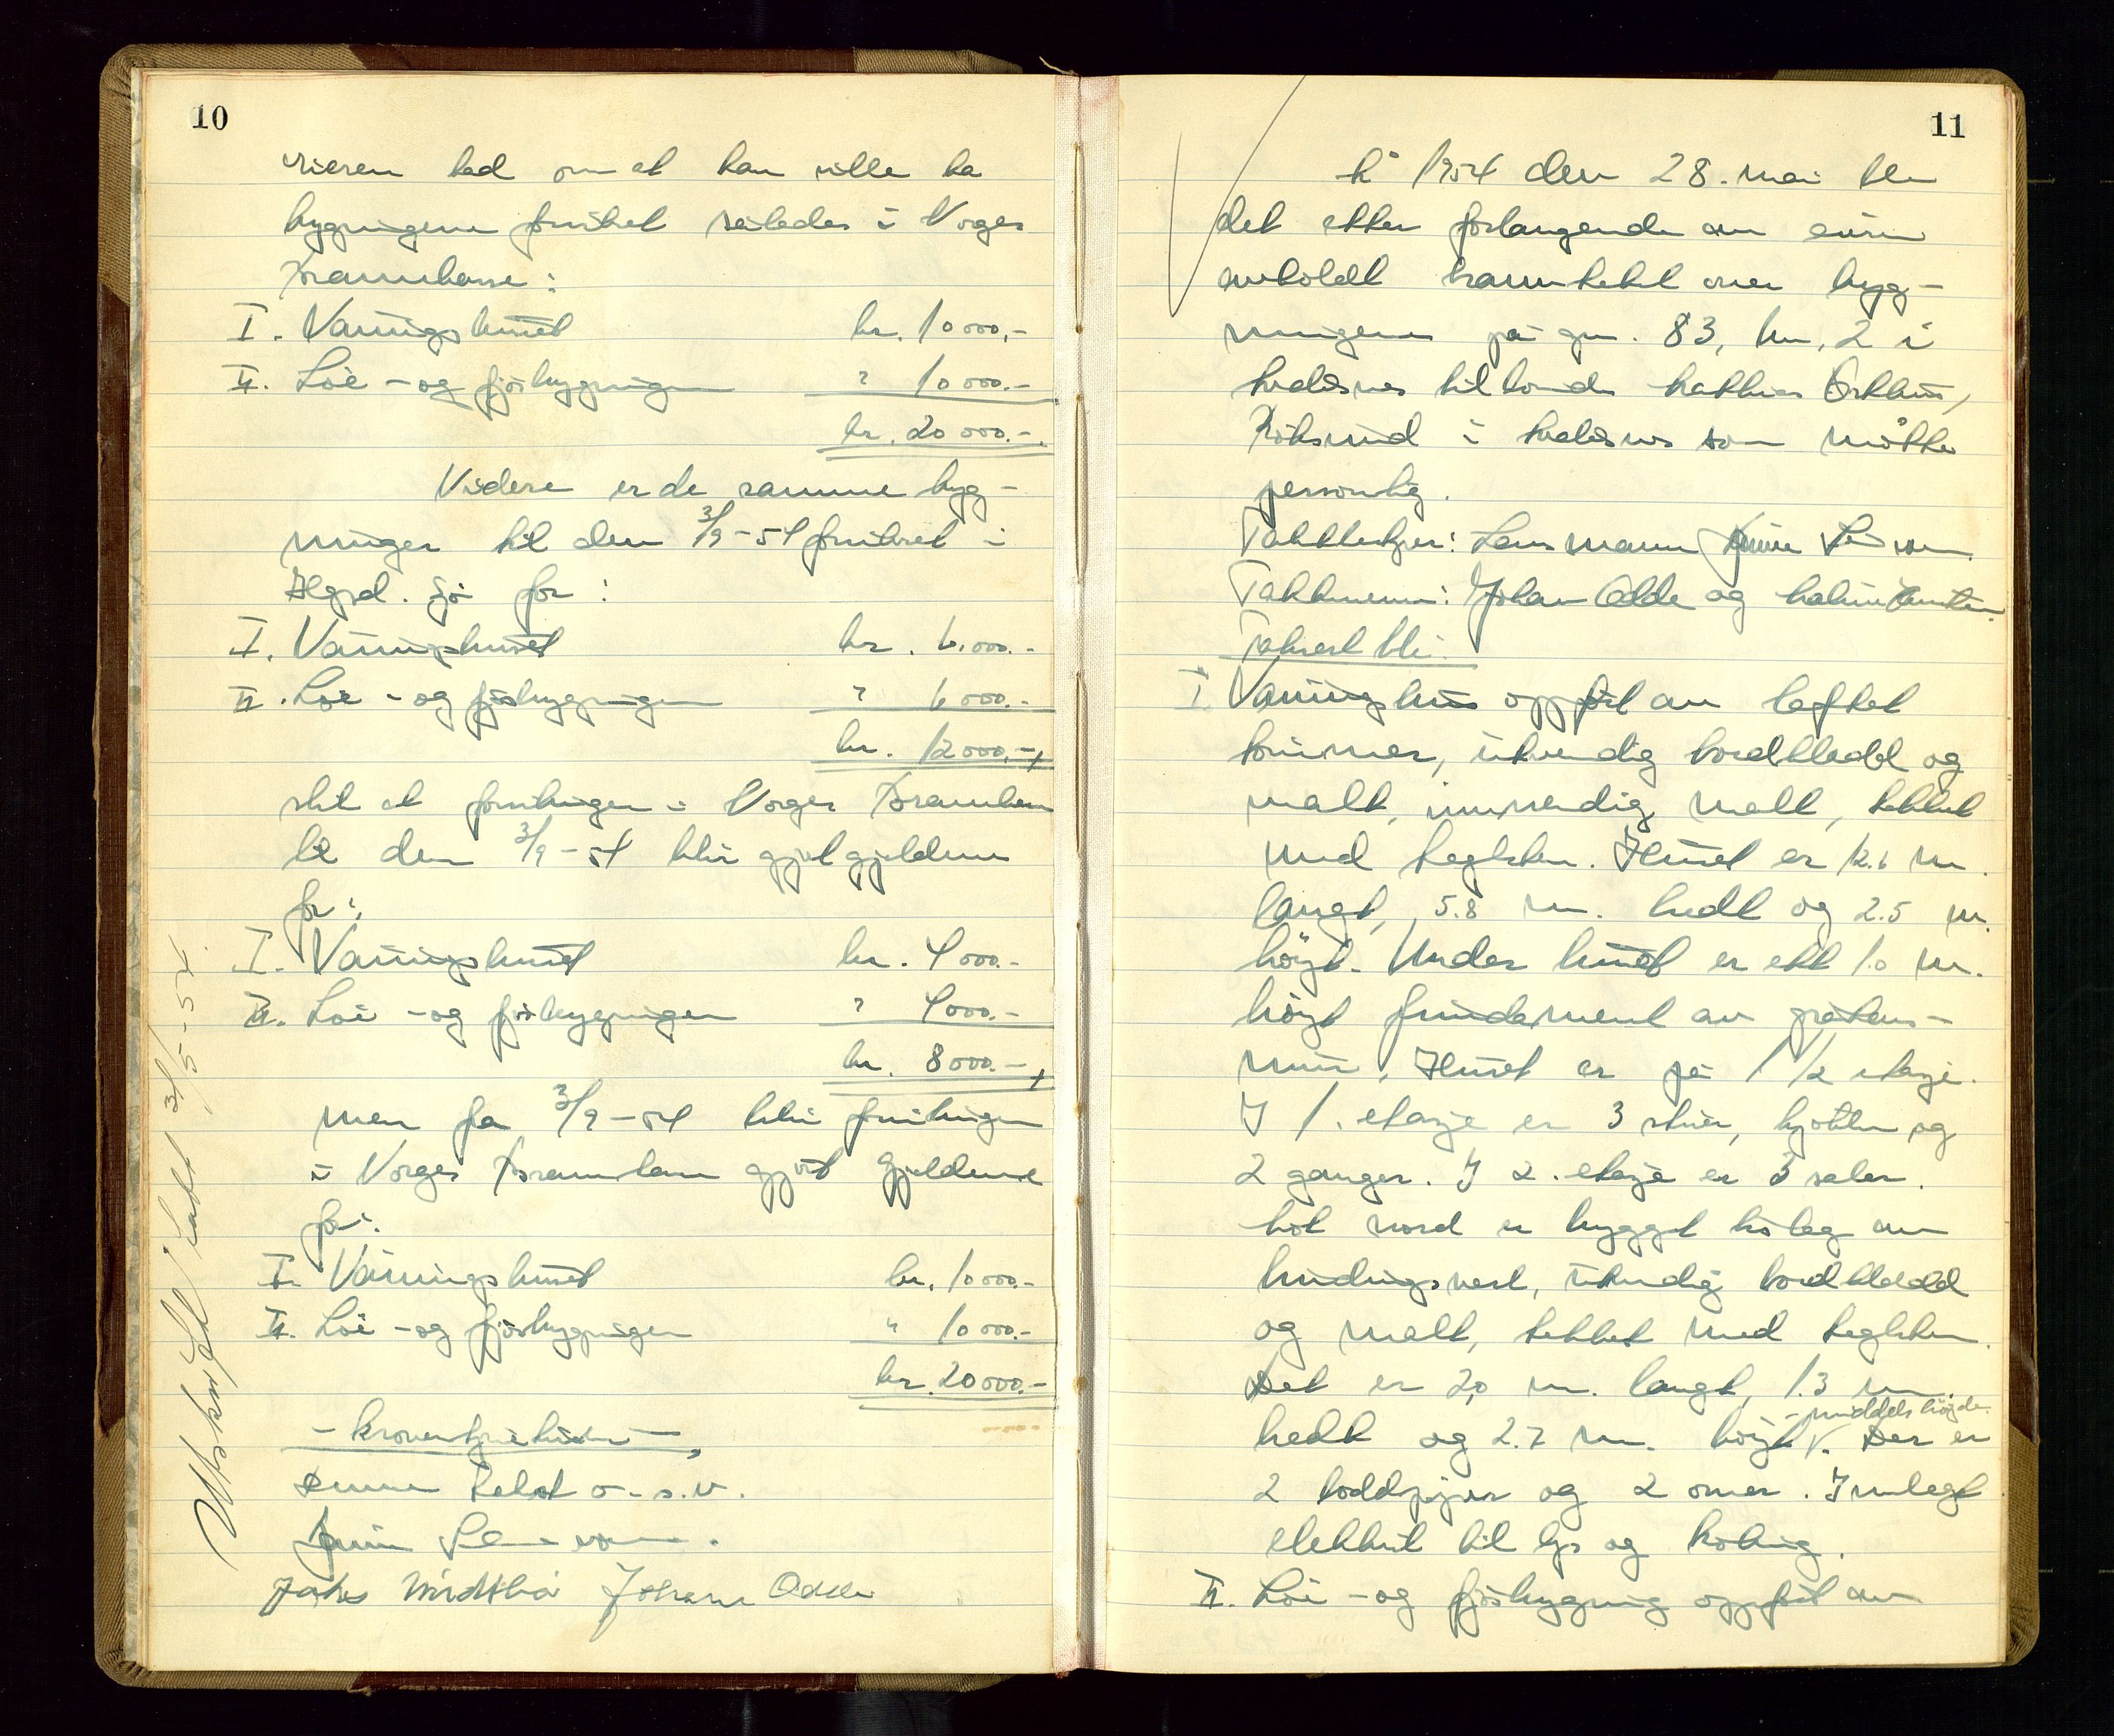 10
rieren bad om at han ville ha
bygningene forsikret således i Norges
Brannkasse:
I. Våningshuset kr. 10000.-
II. Löe - og fjösbygningen " 10000.-
kr. 20000.-
Videre er de samme byg-
ninger til den 3/9-54 forsikret i
Hgsd. Sjö for:
I. Våningshuset kr. 6.000.-
II. Löe - og fjösbygningen " 6000.-
kr. 12000.-
slik at forsikringen i Norges Brannkasse
til den 3/9-54 blir gjort gjeldene
for:
I. Våningshuset kr. 4000.-
II. Löe - og fjösbygningen " 4000.-
kr. 8000.-
men fra 3/9-54 blir forsikringen
i Norges Brannkasse gjort gjeldene
for:
I. Våningshuset kr. 10000.-
II. Löe - og fjösbygningen " 10000.-
kr. 20000.-
- kroner tjuetusen -
Denne takst o.s.v.
Johan Odde
Utskrift sendt 31/5-54.
11
År 1954 den 28. mai ble
det etter forlangende av eieren
avholdt branntakst over byg-
ningene på gnr. 83, bnr. 2 i
tilhørende
i som møtte
personlig.
Takstbestyrer: Lensmann
Takstmenn: Johan Odde og
Taksert ble:
I. Våningshus oppfört av laftet
tömmer, utvendig bordkledd og
malt, innvendig malt, tekket
med teglsten. Huset er 12.6 m.
langt, 5.8 m. bredt og 2.5 m.
höyt. Under huset er ett 1.0 m.
höyt fundament av gråstens-
mur. Huset er på 1 1/2 etasje.
I 1. etasje er 3 stuer, kjökken og
2 ganger. I 2. etasje er 3 saler.
Mot nord er bygget tilbygg av
bindingsverk, utvendig bordkledd
og malt, tekket med teglsten.
Det er 2,0 m. langt, 1.3 m.
bredt og 2.7 m. höyt - middels höyde. Der er
2 loddpiper og 2 ovner. Innlagt
elektrisk til lys og koking.
II. Löe - og fjösbygning oppfört av